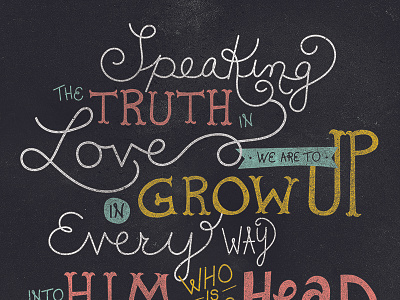 Speaking
THE TRUTH IN
Love
WE ARE TO
IN GROW UP
Every WAY
INTO HIM WHO IS HEAD